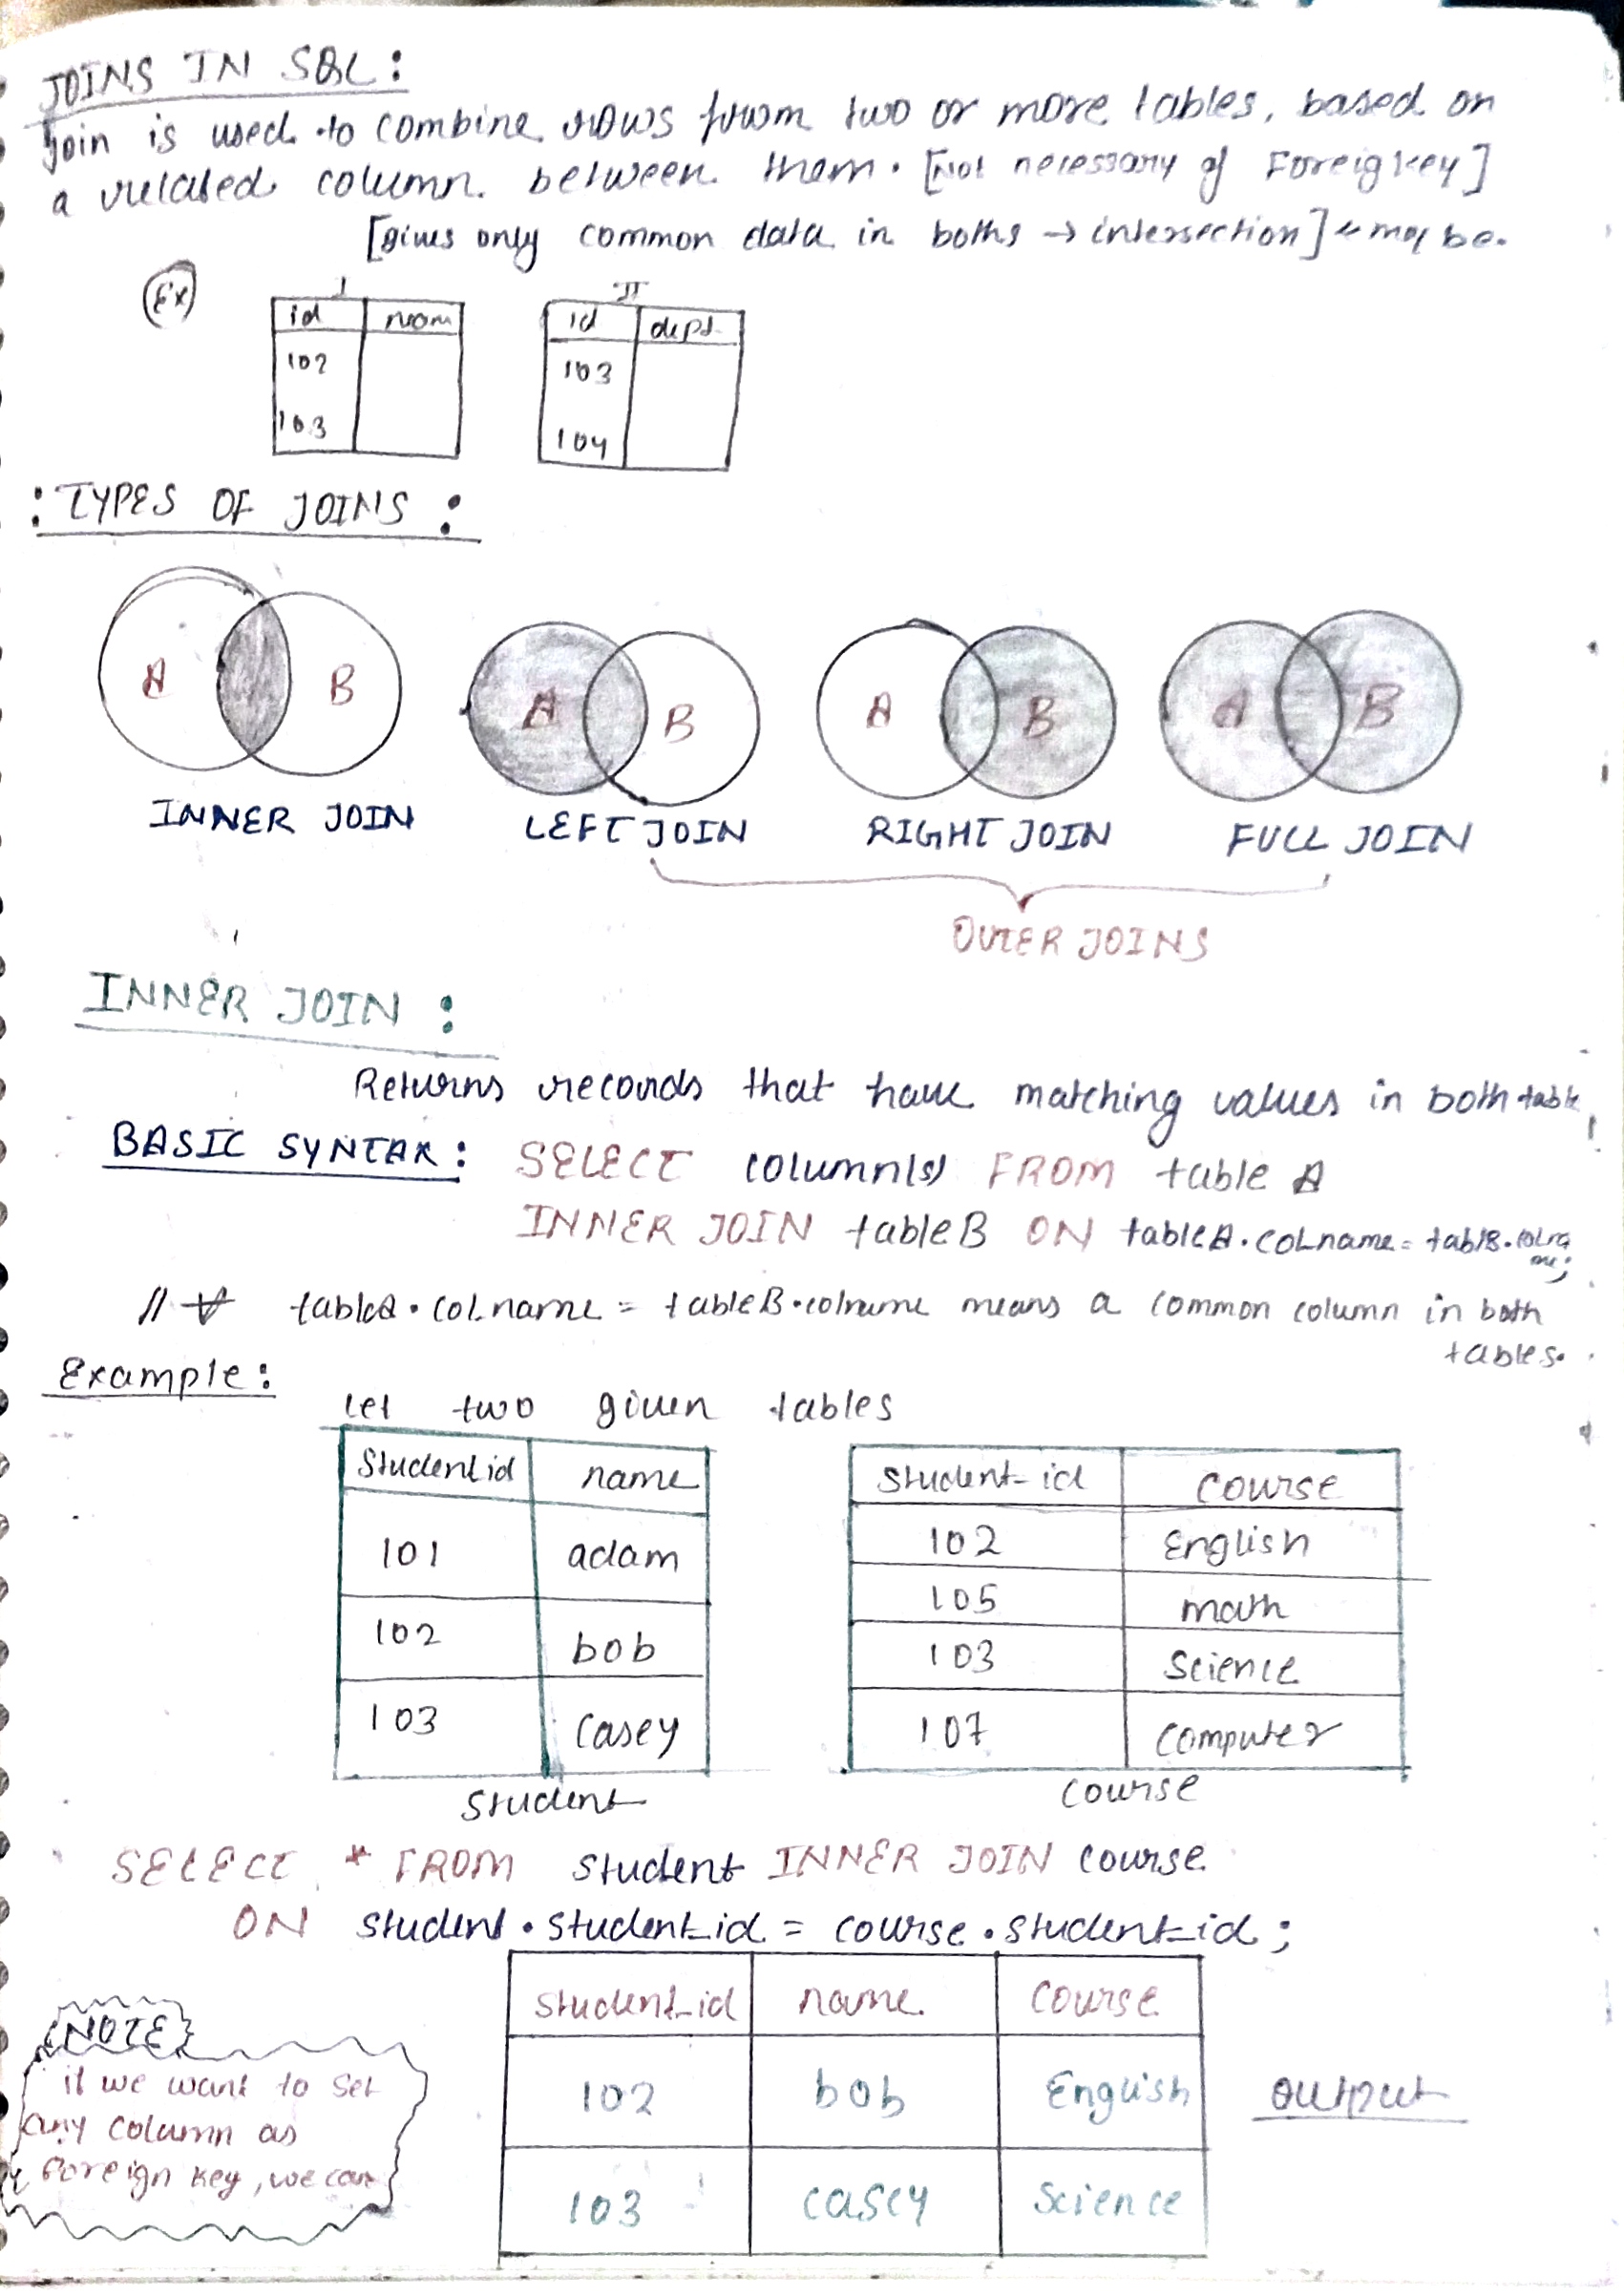 JOINS IN SQL:
Join is used to combine rows from two or more tables, based on
a related column between them. [Not necessary of Foreig key]
[gives only common data in boths → intersection] may be.
Ex
I
II
id nam
id dept.
102
103
103
104
: TYPES OF JOINS :
A B
A B
A B
A B
INNER JOIN
LEFT JOIN
RIGHT JOIN
FULL JOIN
OUTER JOINS
INNER JOIN :
Returns records that have matching values in both table
BASIC SYNTAX: SELECT column(s) FROM table A
INNER JOIN tableB ON tableA.colname = tabB.colna
me;
// tableA.colname = tableB.colname means a common column in both
tables.
Example:
Let two given tables
Student id name
student_id course
101 adam
102 English
102 bob
105 math
103 casey
103 Science
107 computer
student
course
SELECT * FROM student INNER JOIN course
ON student.student_id = course.student_id;
student_id name course
102 bob English
103 casey Science
output
NOTE
if we want to set
any column as
foreign key, we can